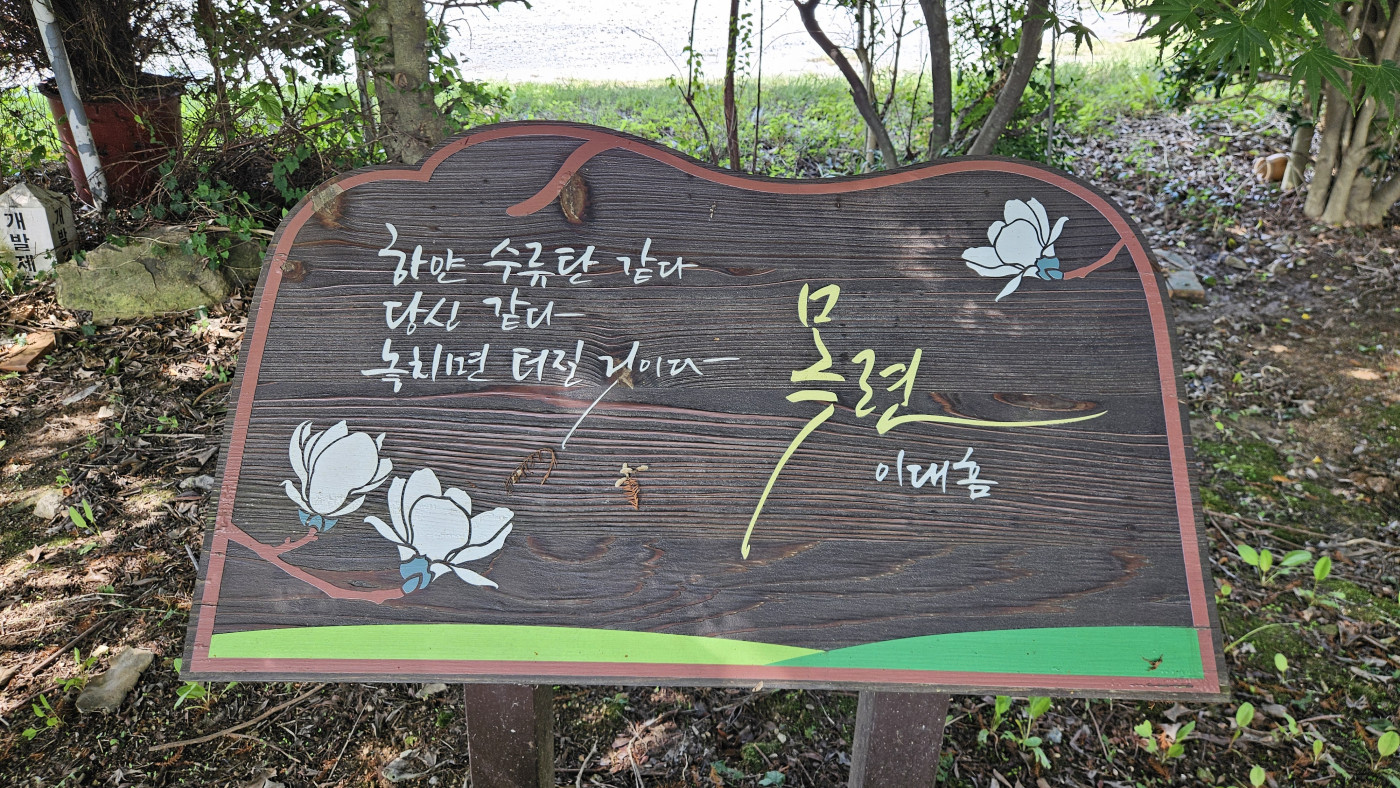 하얀 수류탄 같다
당신 같다
놓치면 터질 거이다
목련
이대흠
개발제
개발